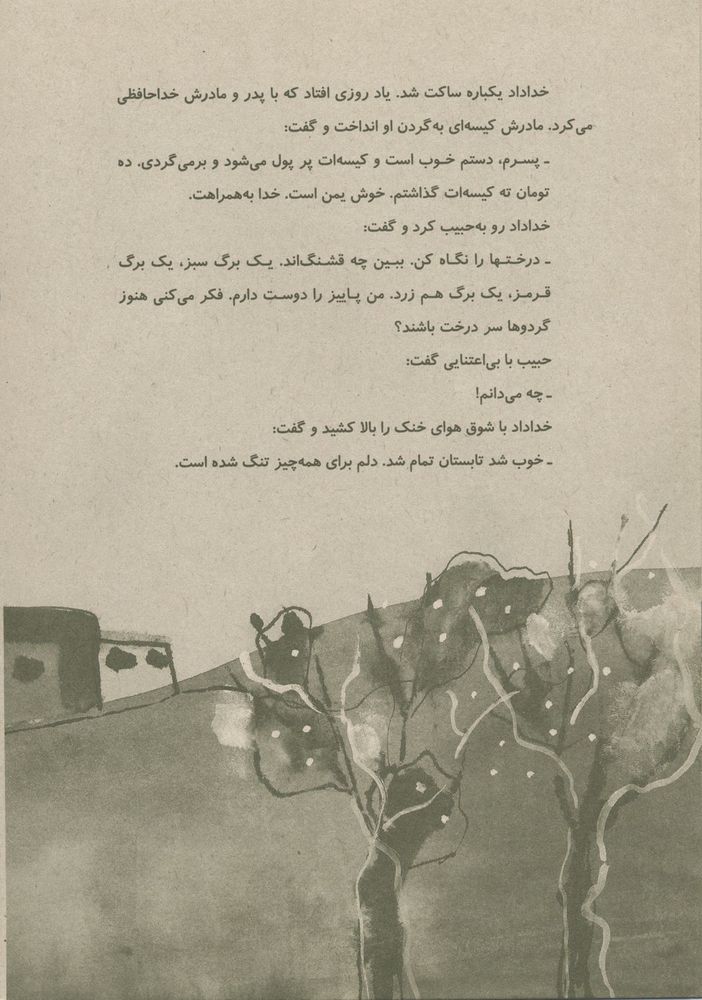 خداداد یکباره ساکت شد. یاد روزی افتاد که با پدر و مادرش خداحافظی
می‌کرد. مادرش کیسه‌ای به‌گردن او انداخت و گفت:
ـ پسرم، دستم خوب است و کیسه‌ات پر پول می‌شود و برمی‌گردی. ده
تومان ته کیسه‌ات گذاشتم. خوش یمن است. خدا به‌همراهت.
خداداد رو به‌حبیب کرد و گفت:
ـ درختها را نگاه کن. ببین چه قشنگ‌اند. یک برگ سبز، یک برگ
قرمز، یک برگ هم زرد. من پاییز را دوست دارم. فکر می‌کنی هنوز
گردوها سر درخت باشند؟
حبیب با بی‌اعتنایی گفت:
ـ چه می‌دانم!
خداداد با شوق هوای خنک را بالا کشید و گفت:
ـ خوب شد تابستان تمام شد. دلم برای همه‌چیز تنگ شده است.